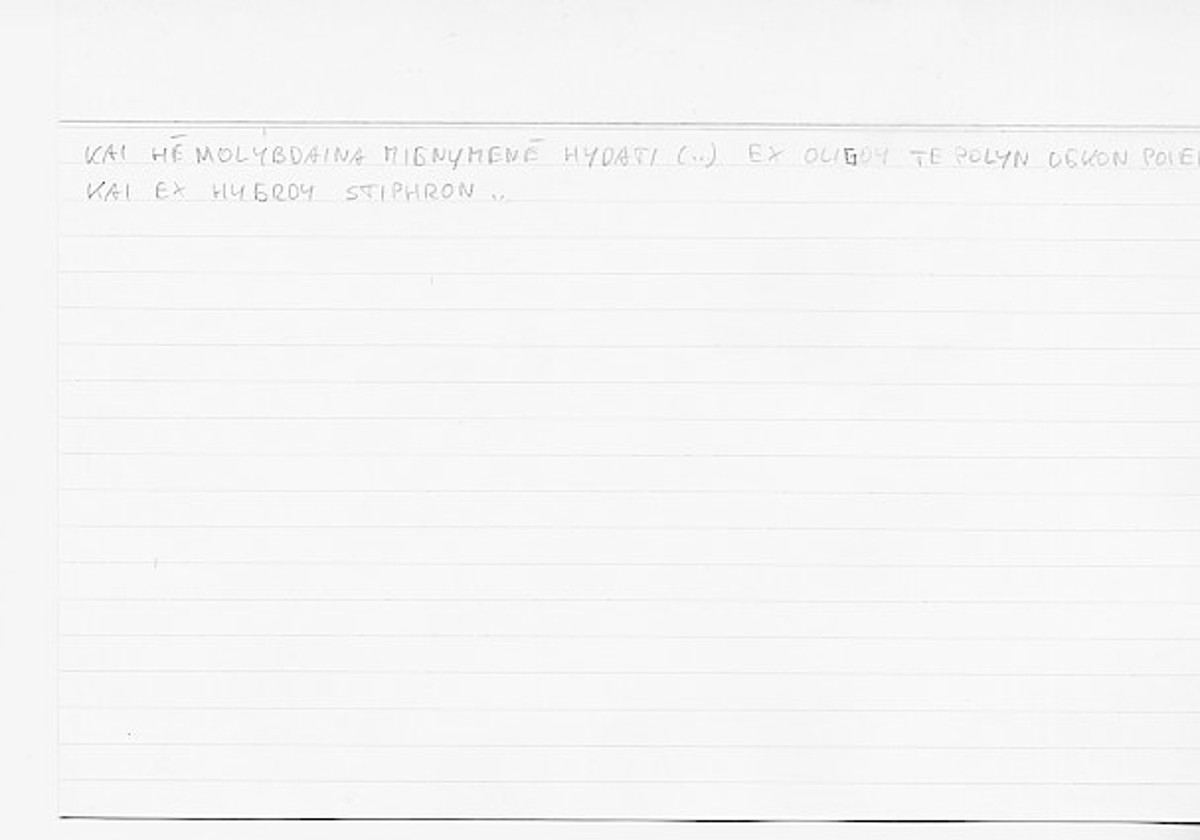 KAI HĒ MOLÝBDAINA MIGNYMENĒ HYDATI (..) EX OLIGOY TE POLYN OGKON POIEI
KAI EX HYGROY STIPHRON ..